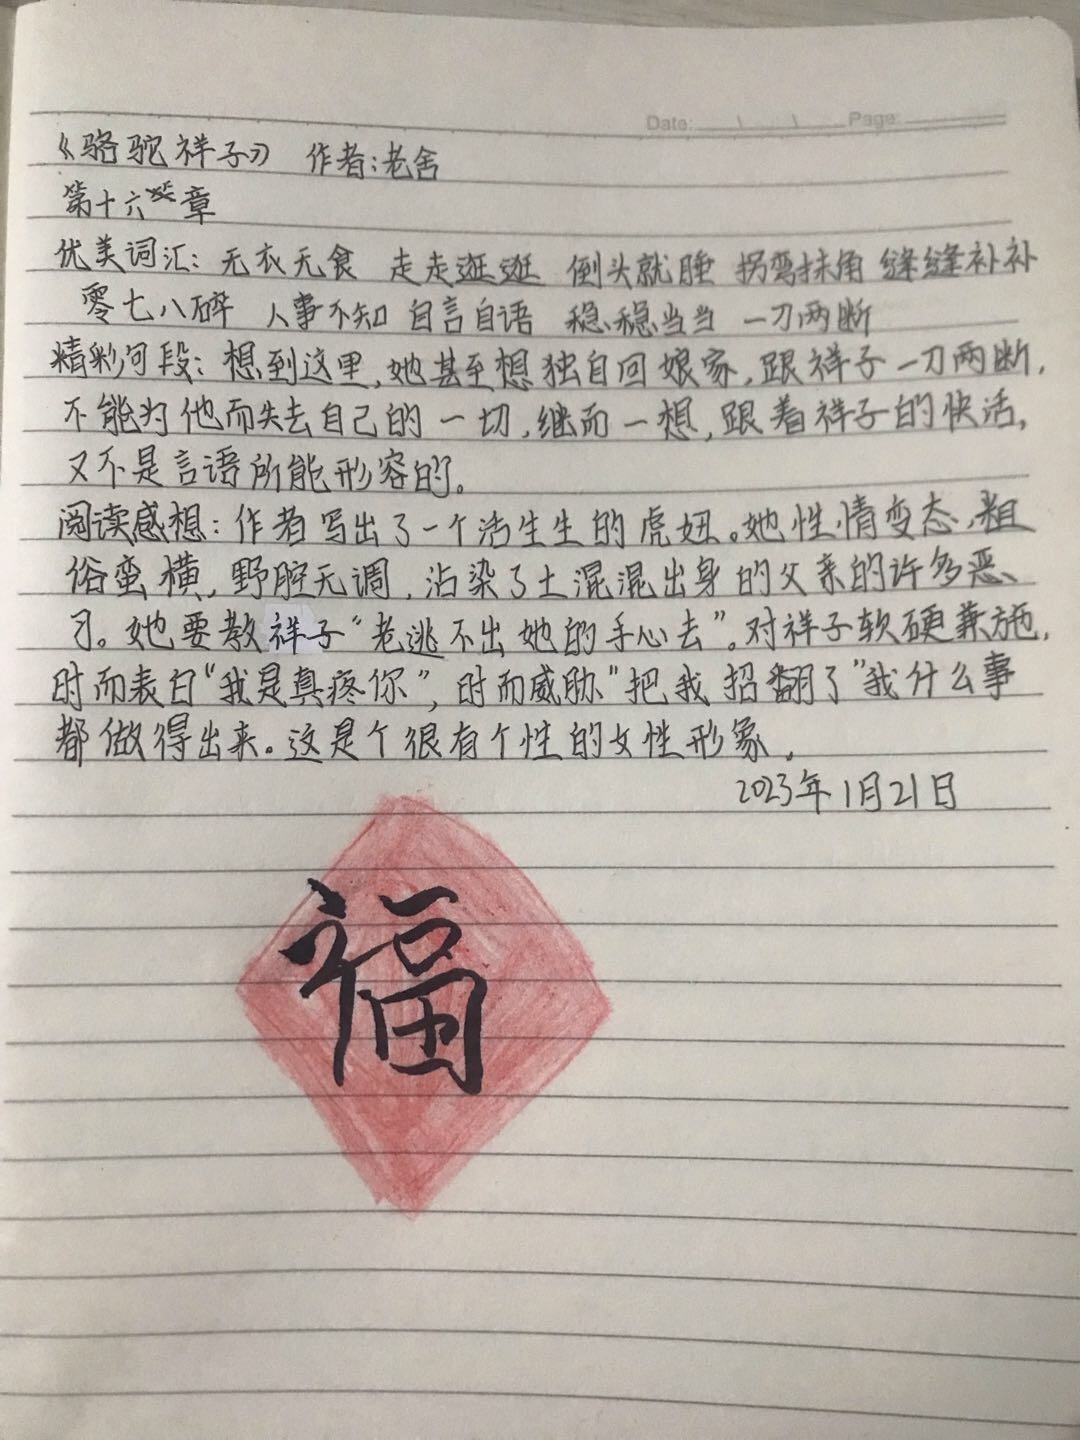 Date: \ \ Page:
《骆驼祥子》 作者:老舍
第十六章
优美词汇: 无衣无食 走走逛逛 倒头就睡 拐弯抹角 缝缝补补
零七八碎 人事不知 自言自语 稳稳当当 一刀两断
精彩句段: 想到这里,她甚至想独自回娘家,跟祥子一刀两断,
不能为他而失去自己的一切,继而一想,跟着祥子的快活,
又不是言语所能形容的。
阅读感想: 作者写出了一个活生生的虎妞。她性情变态,粗
俗蛮横,野腔无调,沾染了土混混出身的父亲的许多恶
习。她要教祥子“老逃不出她的手心去”。对祥子软硬兼施,
时而表白“我是真疼你”,时而威胁“把我招翻了”我什么事
都做得出来。这是个很有个性的女性形象。
2023年1月21日
福